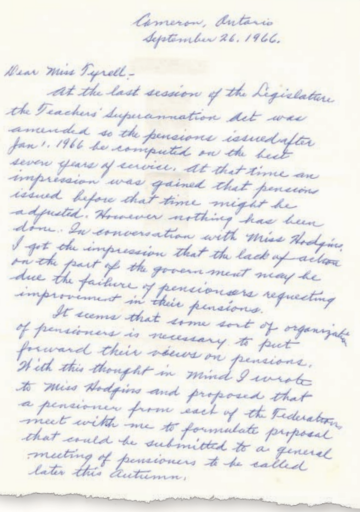 Cameron, Ontario
September 26, 1966.
Dear Miss Tyrell:-
At the last session of the Legislature
the Teachers' Superannation Act was
amended so the pensions issued after
Jan 1, 1966 be computed on the best
seven years of service. At that time an
impression was gained that pensions
issued before that time might be
adjusted. However nothing has been
done. In conversation with Miss Hodgins,
I got the impression that the lack of action
on the part of the government may be
due the failure of pensioners requesting
improvement in their pensions.
It seems that some sort of organization
of pensioners is necessary to put
forward their views on pensions.
With this thought in mind I wrote
to Miss Hodgins and proposed that
a pensioner from each of the Federations
meet with me to formulate proposal
that could be submitted to a general
meeting of pensioners to be called
later this Autumn.